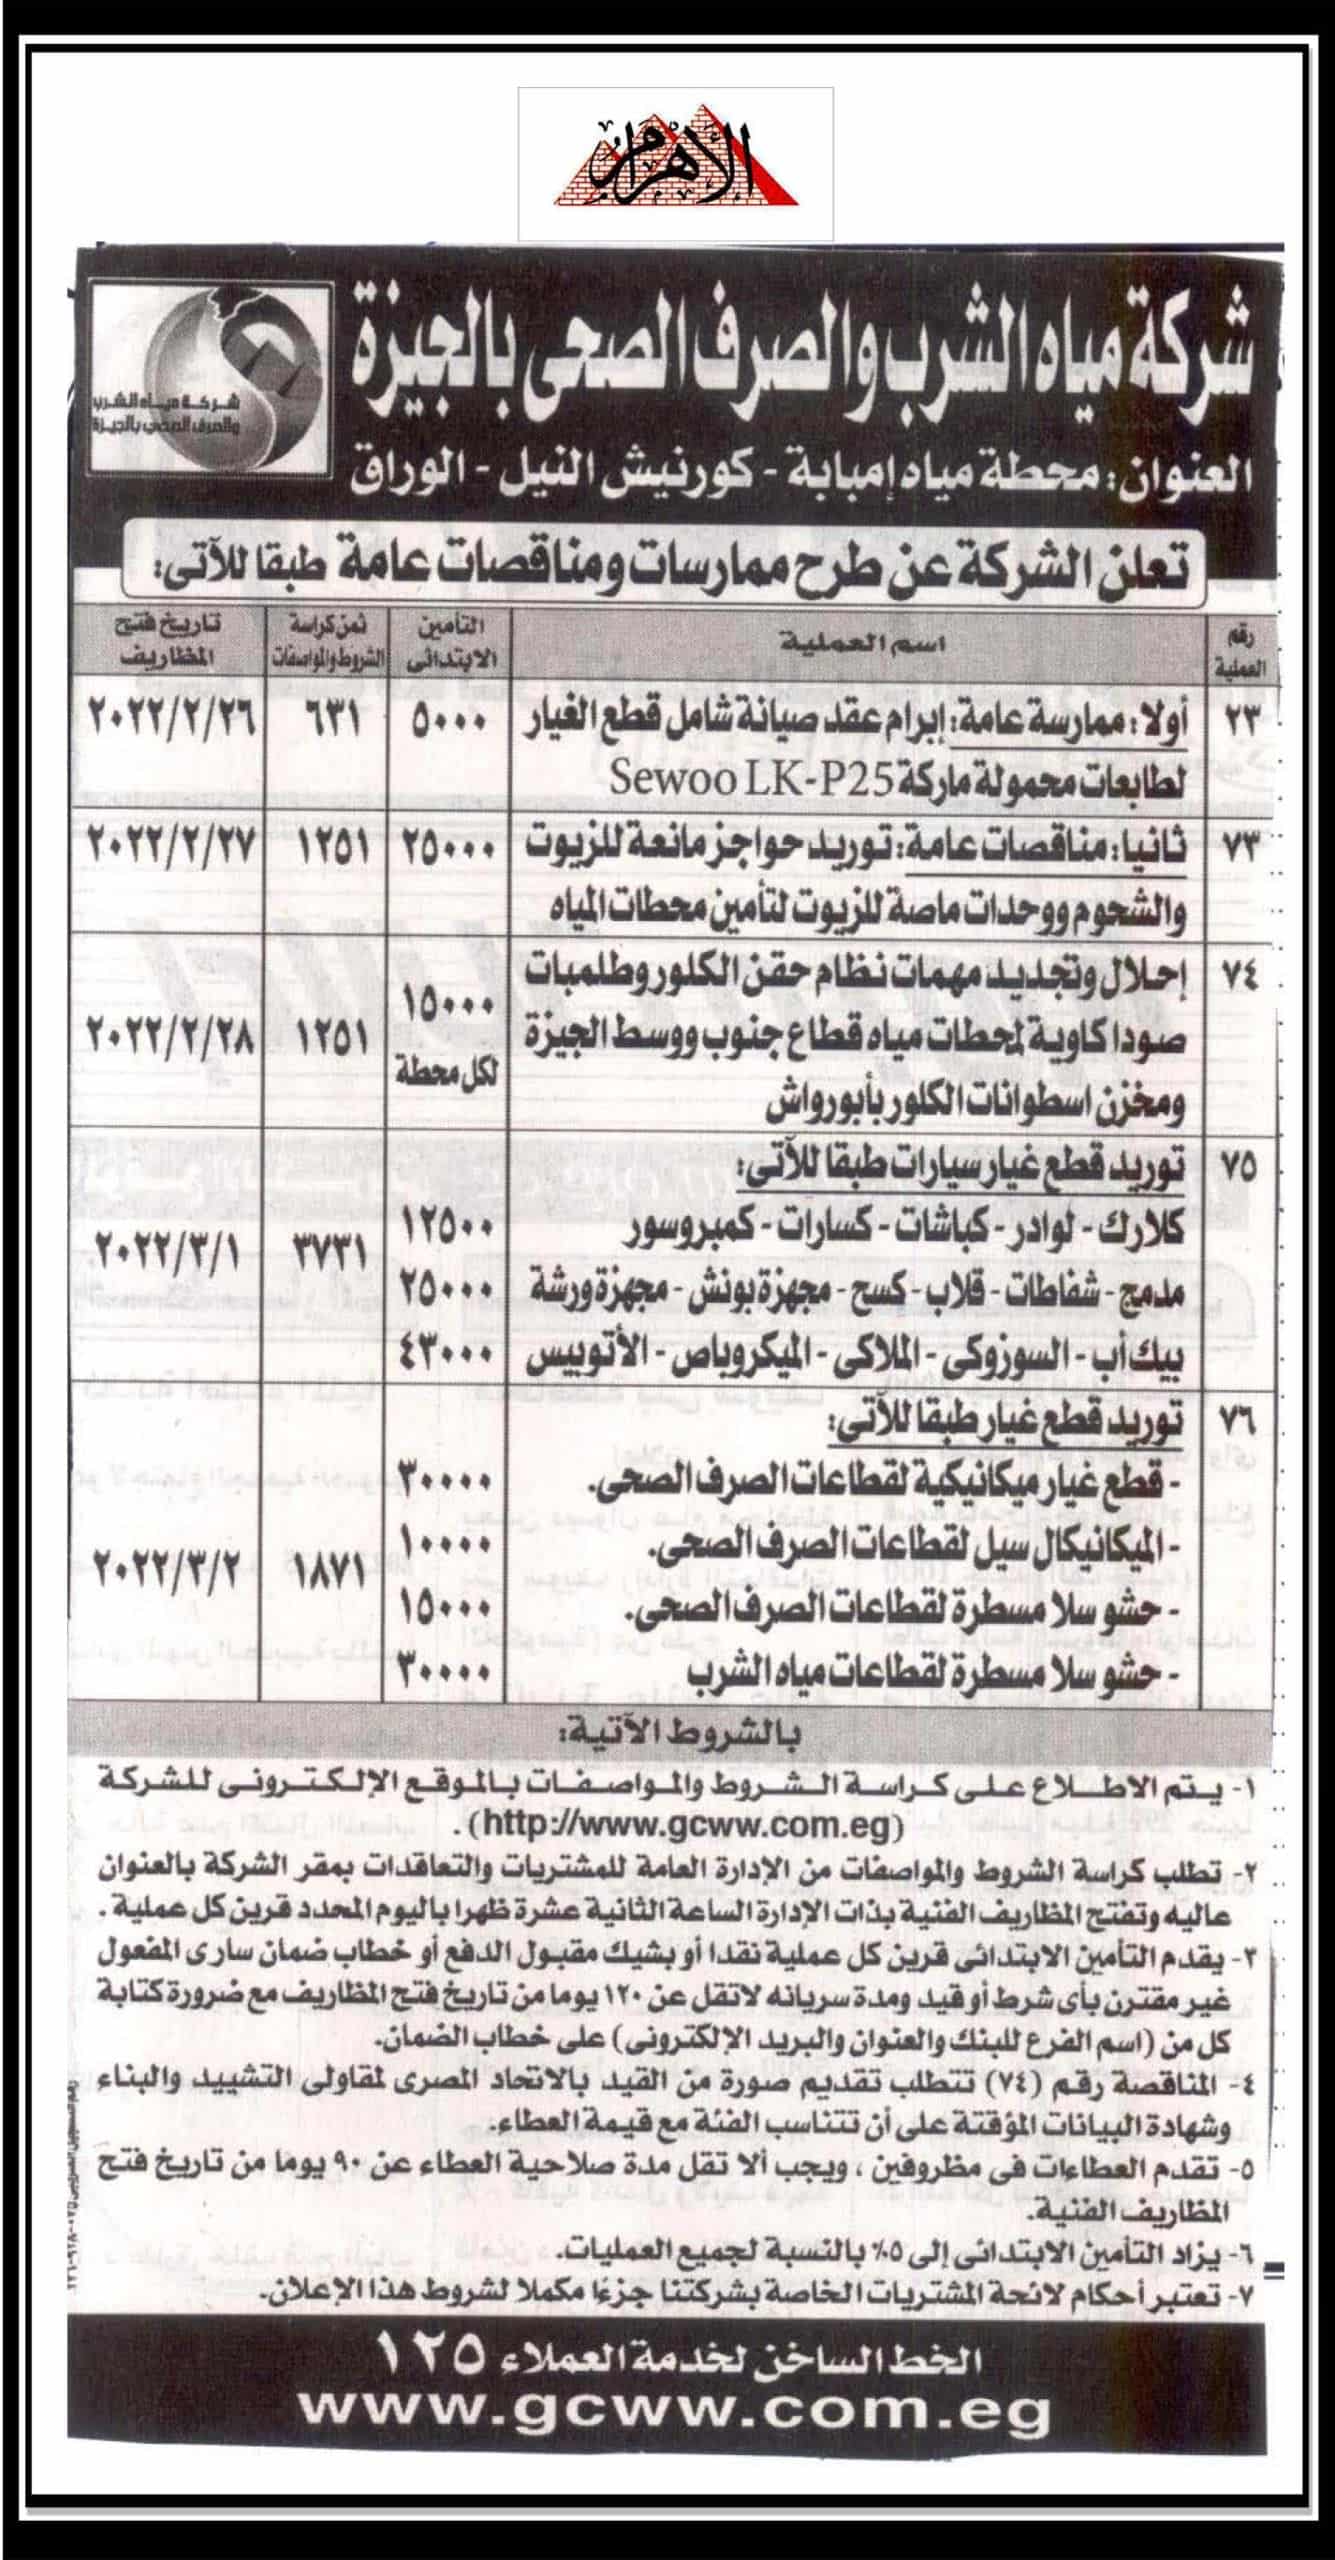 الأهرام
شركة مياه الشرب والصرف الصحى بالجيزة
شركة مياه الشرب
والصرف الصحى بالجيزة
العنوان: محطة مياه إمبابة - كورنيش النيل - الوراق
تعلن الشركة عن طرح ممارسات ومناقصات عامة طبقا للآتى:
رقم العملية
اسم العملية
التأمين الابتدائى
ثمن كراسة الشروط والمواصفات
تاريخ فتح المظاريف
٢٣ أولا: ممارسة عامة: إبرام عقد صيانة شامل قطع الغيار ٥٠٠٠ ٦٣١ ٢٠٢٢/٢/٢٦
لطابعات محمولة ماركة Sewoo LK-P25
٧٣ ثانيا: مناقصات عامة: توريد حواجز مانعة للزيوت ٢٥٠٠٠ ١٢٥١ ٢٠٢٢/٢/٢٧
والشحوم ووحدات ماصة للزيوت لتأمين محطات المياه
٧٤ إحلال وتجديد مهمات نظام حقن الكلور وطلمبات ١٥٠٠٠
صودا كاوية لمحطات مياه قطاع جنوب ووسط الجيزة لكل محطة ١٢٥١ ٢٠٢٢/٢/٢٨
ومخزن اسطوانات الكلور بأبورواش
٧٥ توريد قطع غيار سيارات طبقا للآتى:
كلارك - لوادر - كباشات - كسارات - كمبروسور ١٢٥٠٠ ٣٧٣١ ٢٠٢٢/٣/١
مدمج - شفاطات - قلاب - كسح - مجهزة بونش - مجهزة ورشة ٢٥٠٠٠
بيك أب - السوزوكى - الملاكى - الميكروباص - الأتوبيس ٤٣٠٠٠
٧٦ توريد قطع غيار طبقا للآتى:
- قطع غيار ميكانيكية لقطاعات الصرف الصحى. ٣٠٠٠٠
- الميكانيكال سيل لقطاعات الصرف الصحى. ١٠٠٠٠ ١٨٧١ ٢٠٢٢/٣/٢
- حشو سلا مسطرة لقطاعات الصرف الصحى. ١٥٠٠٠
- حشو سلا مسطرة لقطاعات مياه الشرب ٣٠٠٠٠
بالشروط الآتية:
١- يتم الاطلاع على كراسة الشروط والمواصفات بالموقع الإلكترونى للشركة
(http://www.gcww.com.eg).
٢- تطلب كراسة الشروط والمواصفات من الإدارة العامة للمشتريات والتعاقدات بمقر الشركة بالعنوان
عاليه وتفتح المظاريف الفنية بذات الإدارة الساعة الثانية عشرة ظهرا باليوم المحدد قرين كل عملية.
٣- يقدم التأمين الابتدائى قرين كل عملية نقدا أو بشيك مقبول الدفع أو خطاب ضمان سارى المفعول
غير مقترن بأى شرط أو قيد ومدة سريانه لاتقل عن ١٢٠ يوما من تاريخ فتح المظاريف مع ضرورة كتابة
كل من (اسم الفرع للبنك والعنوان والبريد الإلكترونى) على خطاب الضمان.
٤- المناقصة رقم (٧٤) تتطلب تقديم صورة من القيد بالاتحاد المصرى لمقاولى التشييد والبناء
وشهادة البيانات المؤقتة على أن تتناسب الفئة مع قيمة العطاء.
٥- تقدم العطاءات فى مظروفين ، ويجب ألا تقل مدة صلاحية العطاء عن ٩٠ يوما من تاريخ فتح
المظاريف الفنية.
٦- يزاد التأمين الابتدائى إلى ٥٪ بالنسبة لجميع العمليات.
٧- تعتبر أحكام لائحة المشتريات الخاصة بشركتنا جزءا مكملا لشروط هذا الإعلان.
الخط الساخن لخدمة العملاء ١٢٥
www.gcww.com.eg